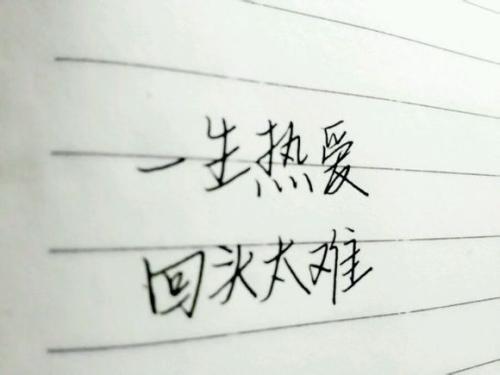 一生热爱
回头太难